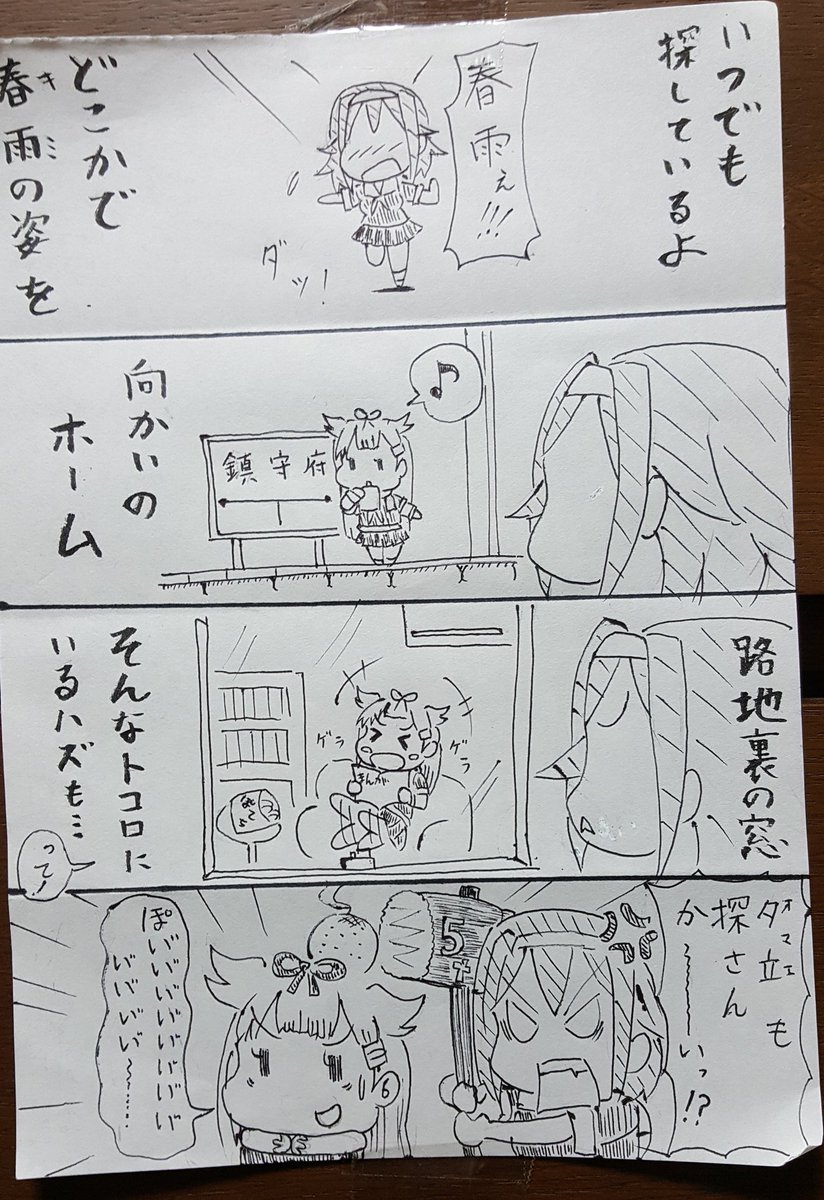 いつでも
探しているよ
春雨ぇ!!!
ダッ!
どこかで
春雨の姿を
キミ
♪
鎮守府
向かいの
ホーム
路地裏の窓
ゲラ
ゲラ
まんが
そんなトコロに
いるハズも…
って!
夕立も
オマエ
探さん
か〜〜いっ!?
5t
ぽいいいいいいいい
いいいい〜……